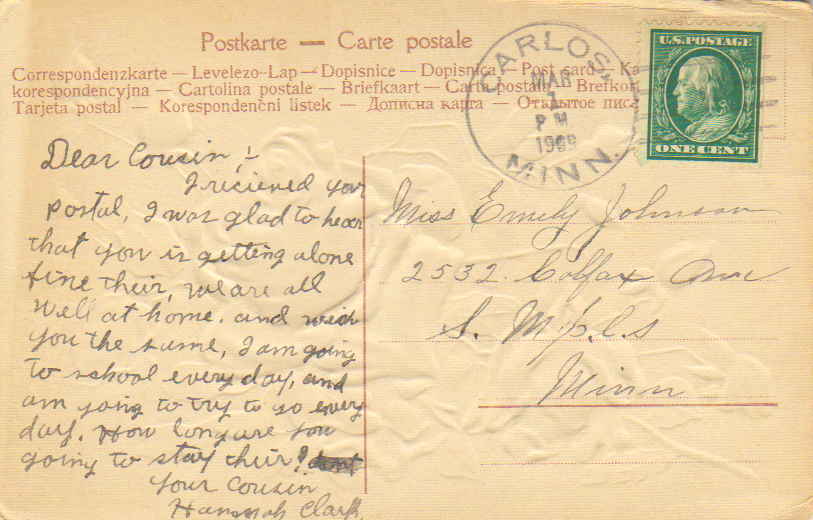 Postkarte — Carte postale
Correspondenzkarte — Levelezo-Lap — Dopisnice — Dopisnica — Post card — Ka
korespondencyjna — Cartolina postale — Briefkaart — Carta postale — Brefkort
Tarjeta postal — Korespondenčni listek — Дописна карта — Открытое пись
CARLOS,
MAR
1
PM
MINN.
U.S. POSTAGE
ONE CENT
Dear Cousin,:-
I recieved your
postal, I was glad to hear
that you is getting alone
fine their, we are all
well at home. and wish
you the same, I am going
to school every day, and
am going to try to go every
day. How long are you
going to stay their?
Your Cousin
Hannah Clark,
Miss Emily Johnson
2532. Colfax Ave
S. Mpls
Minn